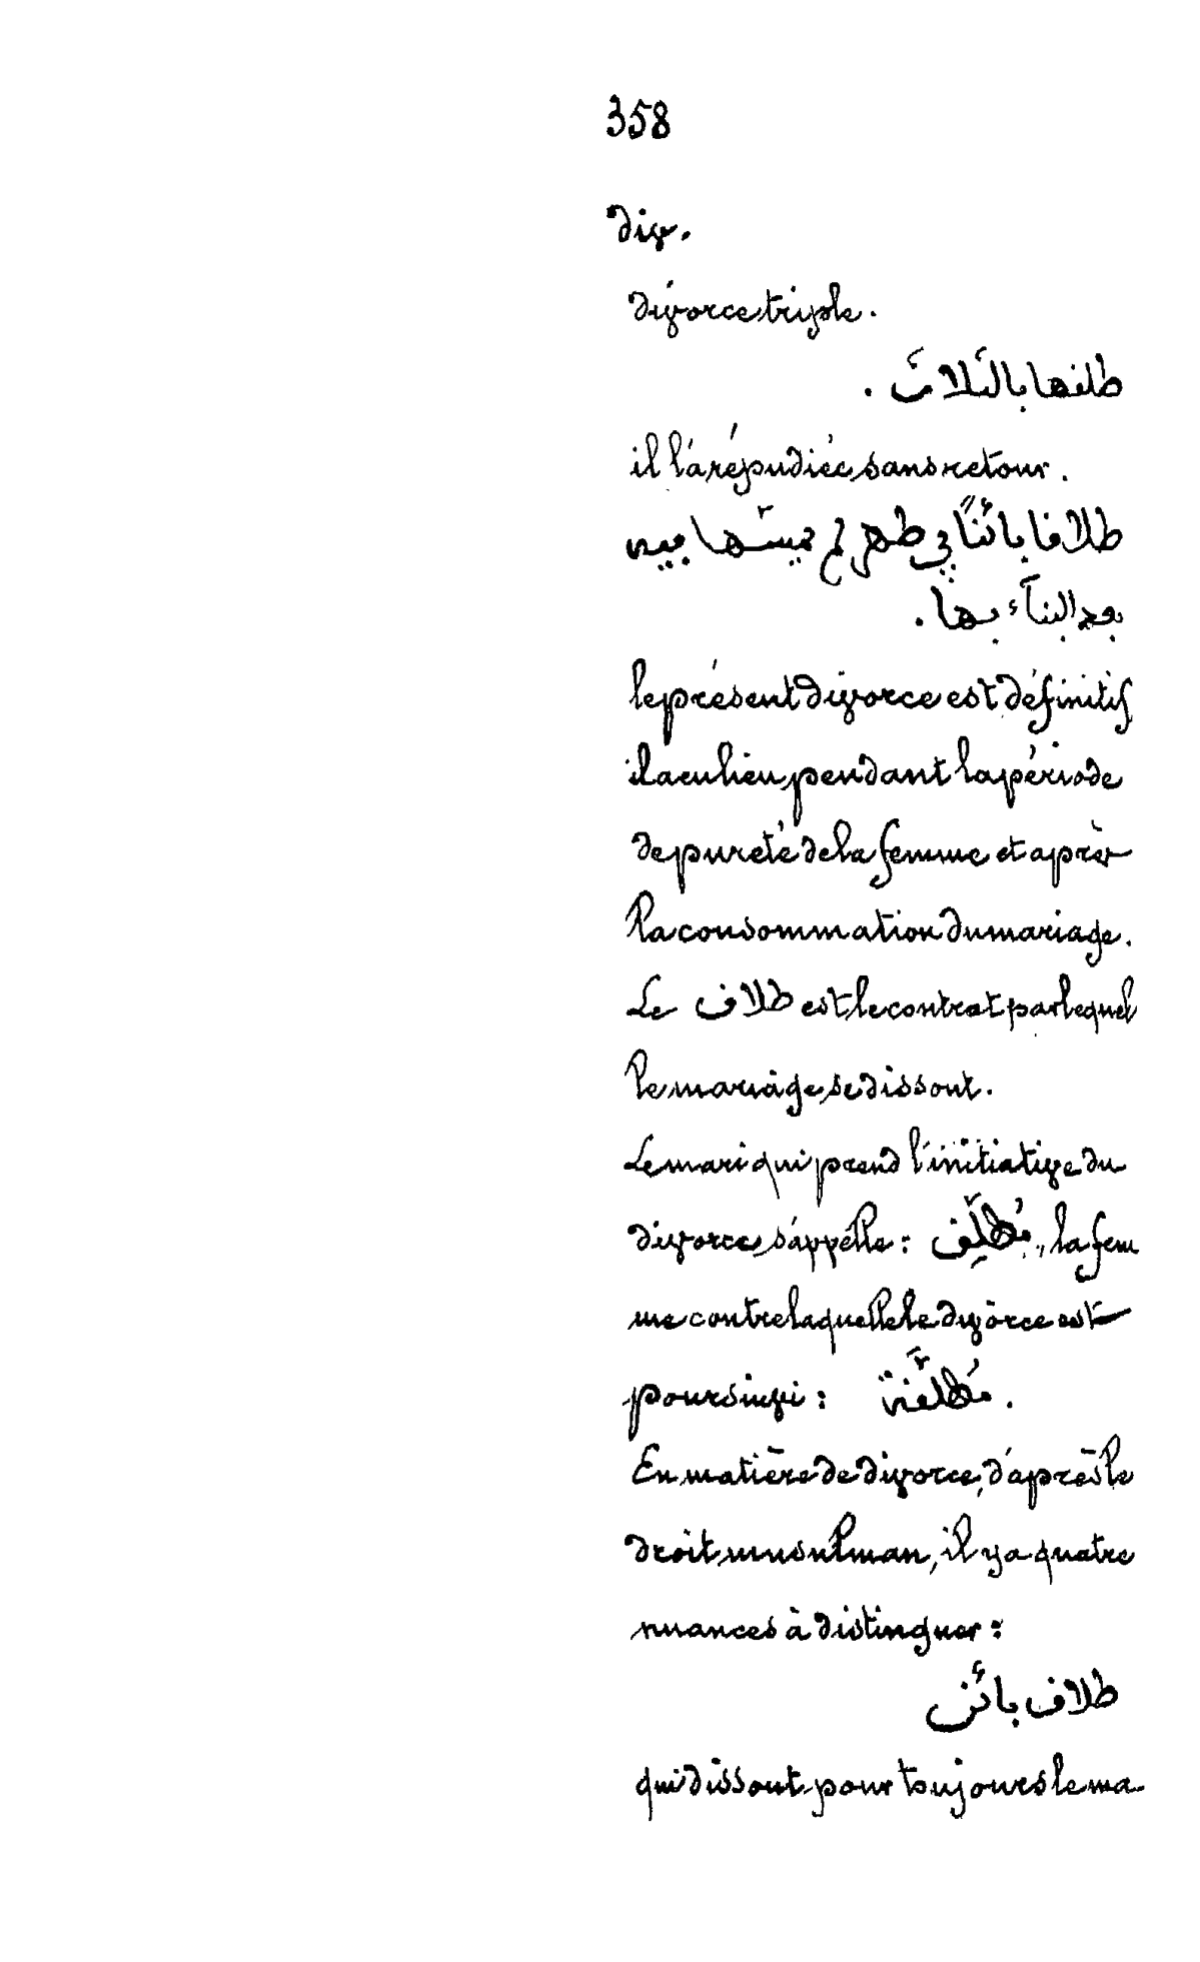 358
div.
divorce triple.
طلقها بالثلاث .
il l'a répudiée sans retour.
طلاقا بائنًا في طهر لم يمسّها فيه
بعد البنآء بها .
le présent divorce est définitif
il a eu lieu pendant la période
de pureté de la femme et après
la consommation du mariage.
Le طلاق est le contrat par lequel
le mariage se dissout.
Le mari qui prend l'initiative du
divorce s'appelle : مُطَلِّق, la fem
me contre laquelle le divorce est
poursuivi : مُطَلَّقة .
En matière de divorce, d'après le
droit musulman, il y a quatre
nuances à distinguer :
طلاق بائن
qui dissout pour toujours le ma-